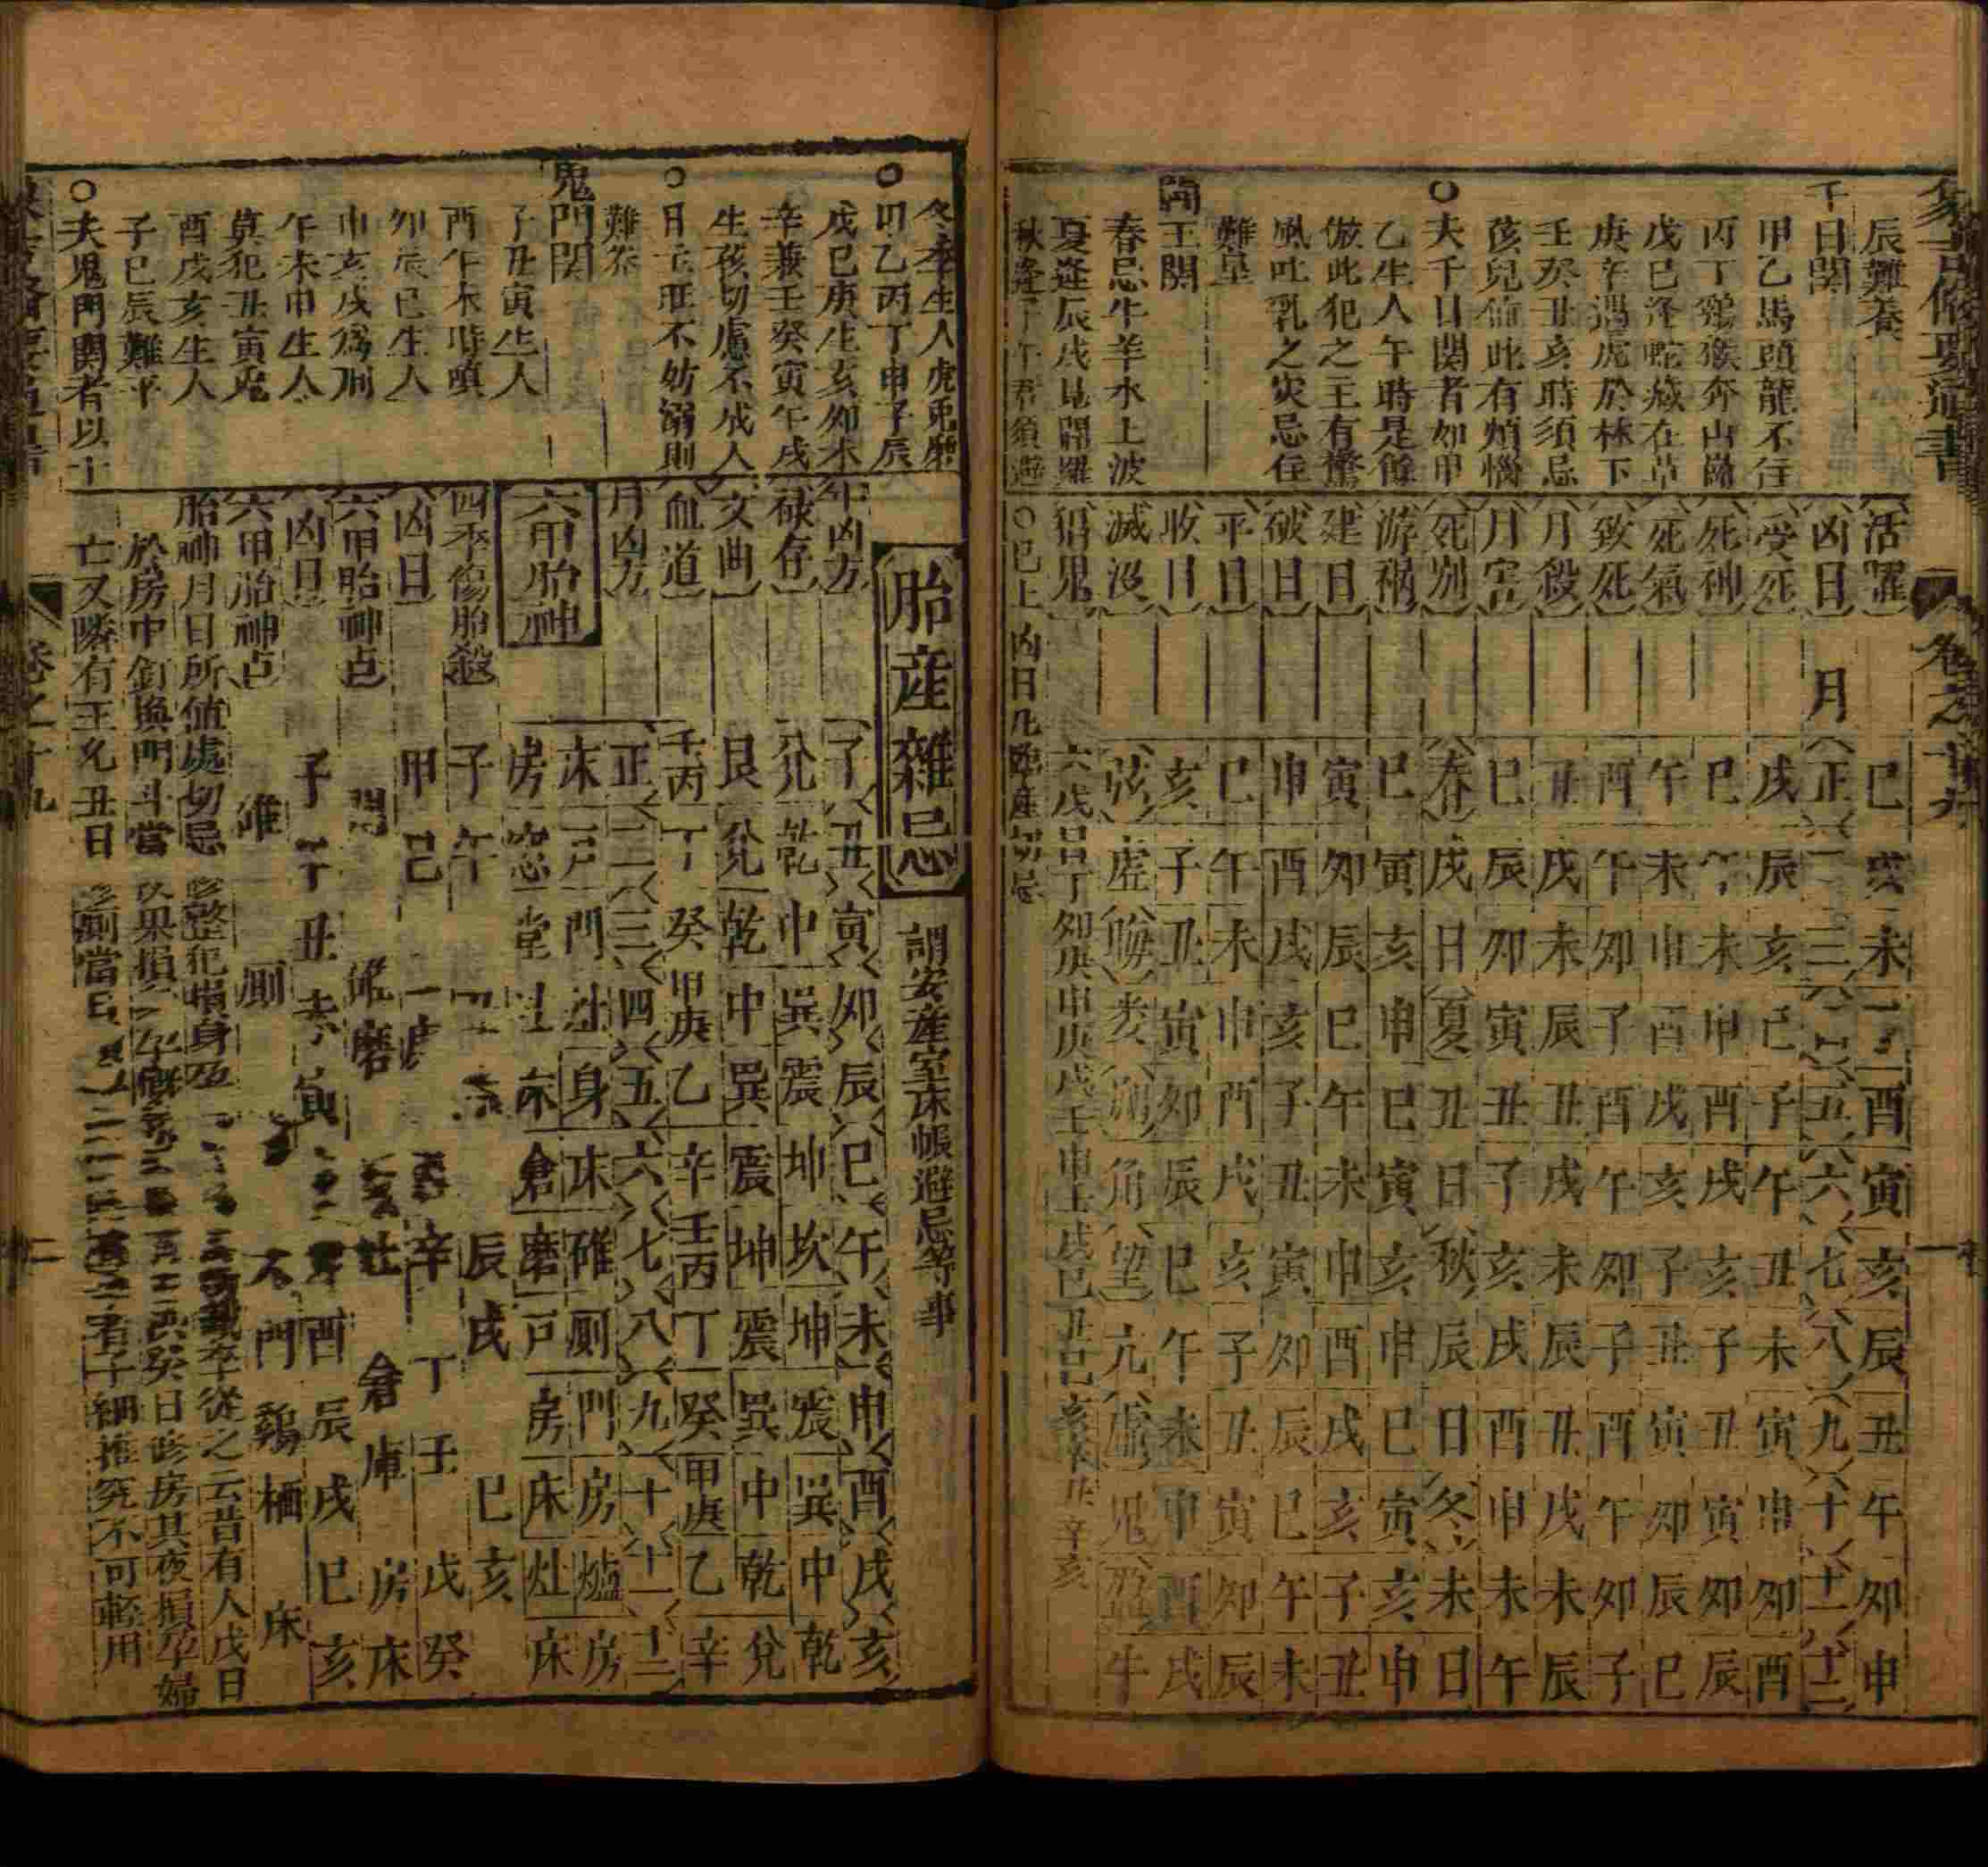 象吉備要通書
卷之十九
辰難養
千日關
甲乙馬頭龍不住
丙丁雞猴奔山崗
戊巳逢蛇藏在草
庚辛遇虎於林下
壬癸丑亥時須忌
孩兒値此有煩惱
○夫千日関者如甲
乙生人午時是餘
倣此犯之主有驚
風吐乳之災忌住
難星
閻王關
春忌牛羊水上波
夏逢辰戌見閻羅
秋逢子午君須避
活曜 巳 戌 未 酉 寅 亥 辰 丑 午 卯 申
凶日 月 正 二 三 四 五 六 七 八 九 十 十一 十二
受死 戌 辰 亥 巳 子 午 丑 未 寅 申 卯 酉
死神 巳 午 未 申 酉 戌 亥 子 丑 寅 卯 辰
死氣 午 未 申 酉 戌 亥 子 丑 寅 卯 辰 巳
致死 酉 午 卯 子 酉 午 卯 子 酉 午 卯 子
月殺 丑 戌 未 辰 丑 戌 未 辰 丑 戌 未 辰
月害 巳 辰 卯 寅 丑 子 亥 戌 酉 申 未 午
死別 春 戌 日 夏 丑 日 秋 辰 日 冬 未 日
游禍 巳 寅 亥 申 巳 寅 亥 申 巳 寅 亥 申
建日 寅 卯 辰 巳 午 未 申 酉 戌 亥 子 丑
破日 申 酉 戌 亥 子 丑 寅 卯 辰 巳 午 未
平日 巳 午 未 申 酉 戌 亥 子 丑 寅 卯 辰
收日 亥 子 丑 寅 卯 辰 巳 午 未 申 酉 戌
滅沒 弦 虛 晦 婁 朔 角 望 亢 虛 鬼 盈 牛
猖鬼 六戊 卯庚申庚戌壬申壬戌己丑己亥 丑辛亥
○已上凶日凡 產切忌
冬季生人虎兎磨
○甲乙丙丁申子辰
戊巳庚生亥卯未
辛兼壬癸寅午戌
生孩切慮不成人
○日主旺不妨溺則
難养
鬼門関
子丑寅生人
酉午未時嗔
卯辰巳生人
申亥戌爲刑
午未申生人
莫犯丑寅兎
酉戌亥生人
子巳辰難平
○夫鬼門関者以十
胎産雜忌 謂安産室床帳避忌等事
年凶方 子 丑 寅 卯 辰 巳 午 未 申 酉 戌 亥
祿存 兊 乾 中 巽 震 坤 坎 坤 震 巽 中 乾
文曲 艮 兊 乾 中 巽 震 坤 震 巽 中 乾 兊
血道 壬丙 丁 癸 甲庚 乙 辛 壬丙 丁 癸 甲庚 乙 辛
月凶方 正 二 三 四 五 六 七 八 九 十 十一 十二
六甲胎神 床 戸 門 灶 身 床 碓 厠 門 房 爐 房
房 窓 堂 灶 床 倉 磨 戸 房 床 灶 床
四季傷胎殺 子 午 辰 戌 巳 亥
凶日 甲 己 辛 丁 壬 戊 癸
六甲胎神占 門 碓磨 灶 倉庫 房床
凶日 子 午 丑 未 寅 酉 辰 戌 巳 亥
六甲胎神占 碓 厠 門 鷄栖 床
胎神月日所値處切忌修整犯嗔身 卒從之云昔有人戊日
於房中釘換門斗當 果損 癸日修房其夜損孕婦
亡又隣有王允丑日修厠當 者子細推究不可輕用